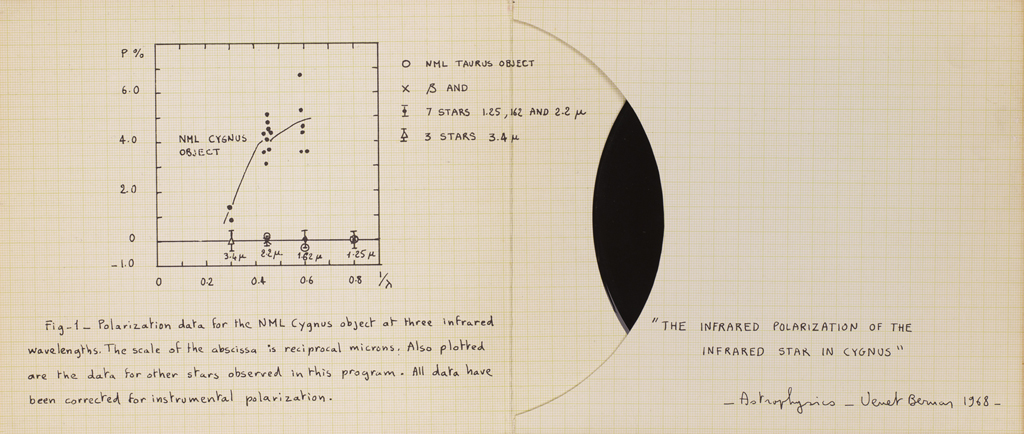 P %
6.0
4.0
2.0
0
-1.0
NML CYGNUS
OBJECT
3.4 μ
2.2 μ
1.62 μ
1.25 μ
0 0.2 0.4 0.6 0.8 1/λ
NML TAURUS OBJECT
β AND
7 STARS 1.25, 162 AND 2.2 μ
3 STARS 3.4 μ
Fig-1_ Polarization data for the NML Cygnus object at three infrared
wavelengths. The scale of the abscissa is reciprocal microns. Also plotted
are the data for other stars observed in this program. All data have
been corrected for instrumental polarization.
"THE INFRARED POLARIZATION OF THE
INFRARED STAR IN CYGNUS"
_ Astrophysics _ Venet Bernar 1968 _